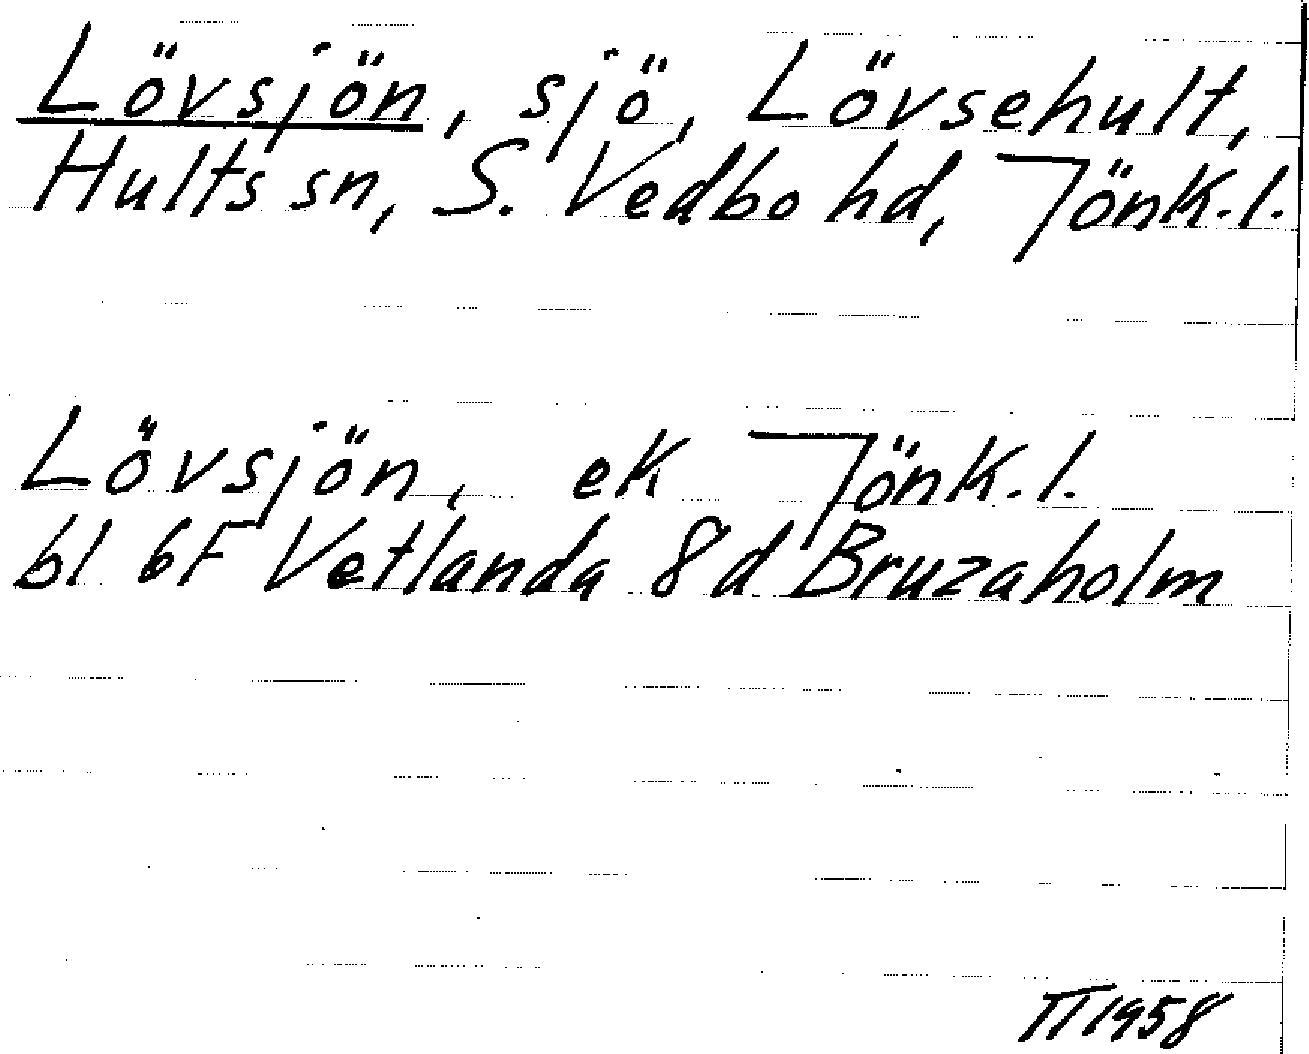 Lövsjön, sjö, Lövsehult,
Hults sn, S. Vedbo hd, Jönk.l.
Lövsjön, ek Jönk.l.
bl 6F Vetlanda 8d Bruzaholm
TT 1958